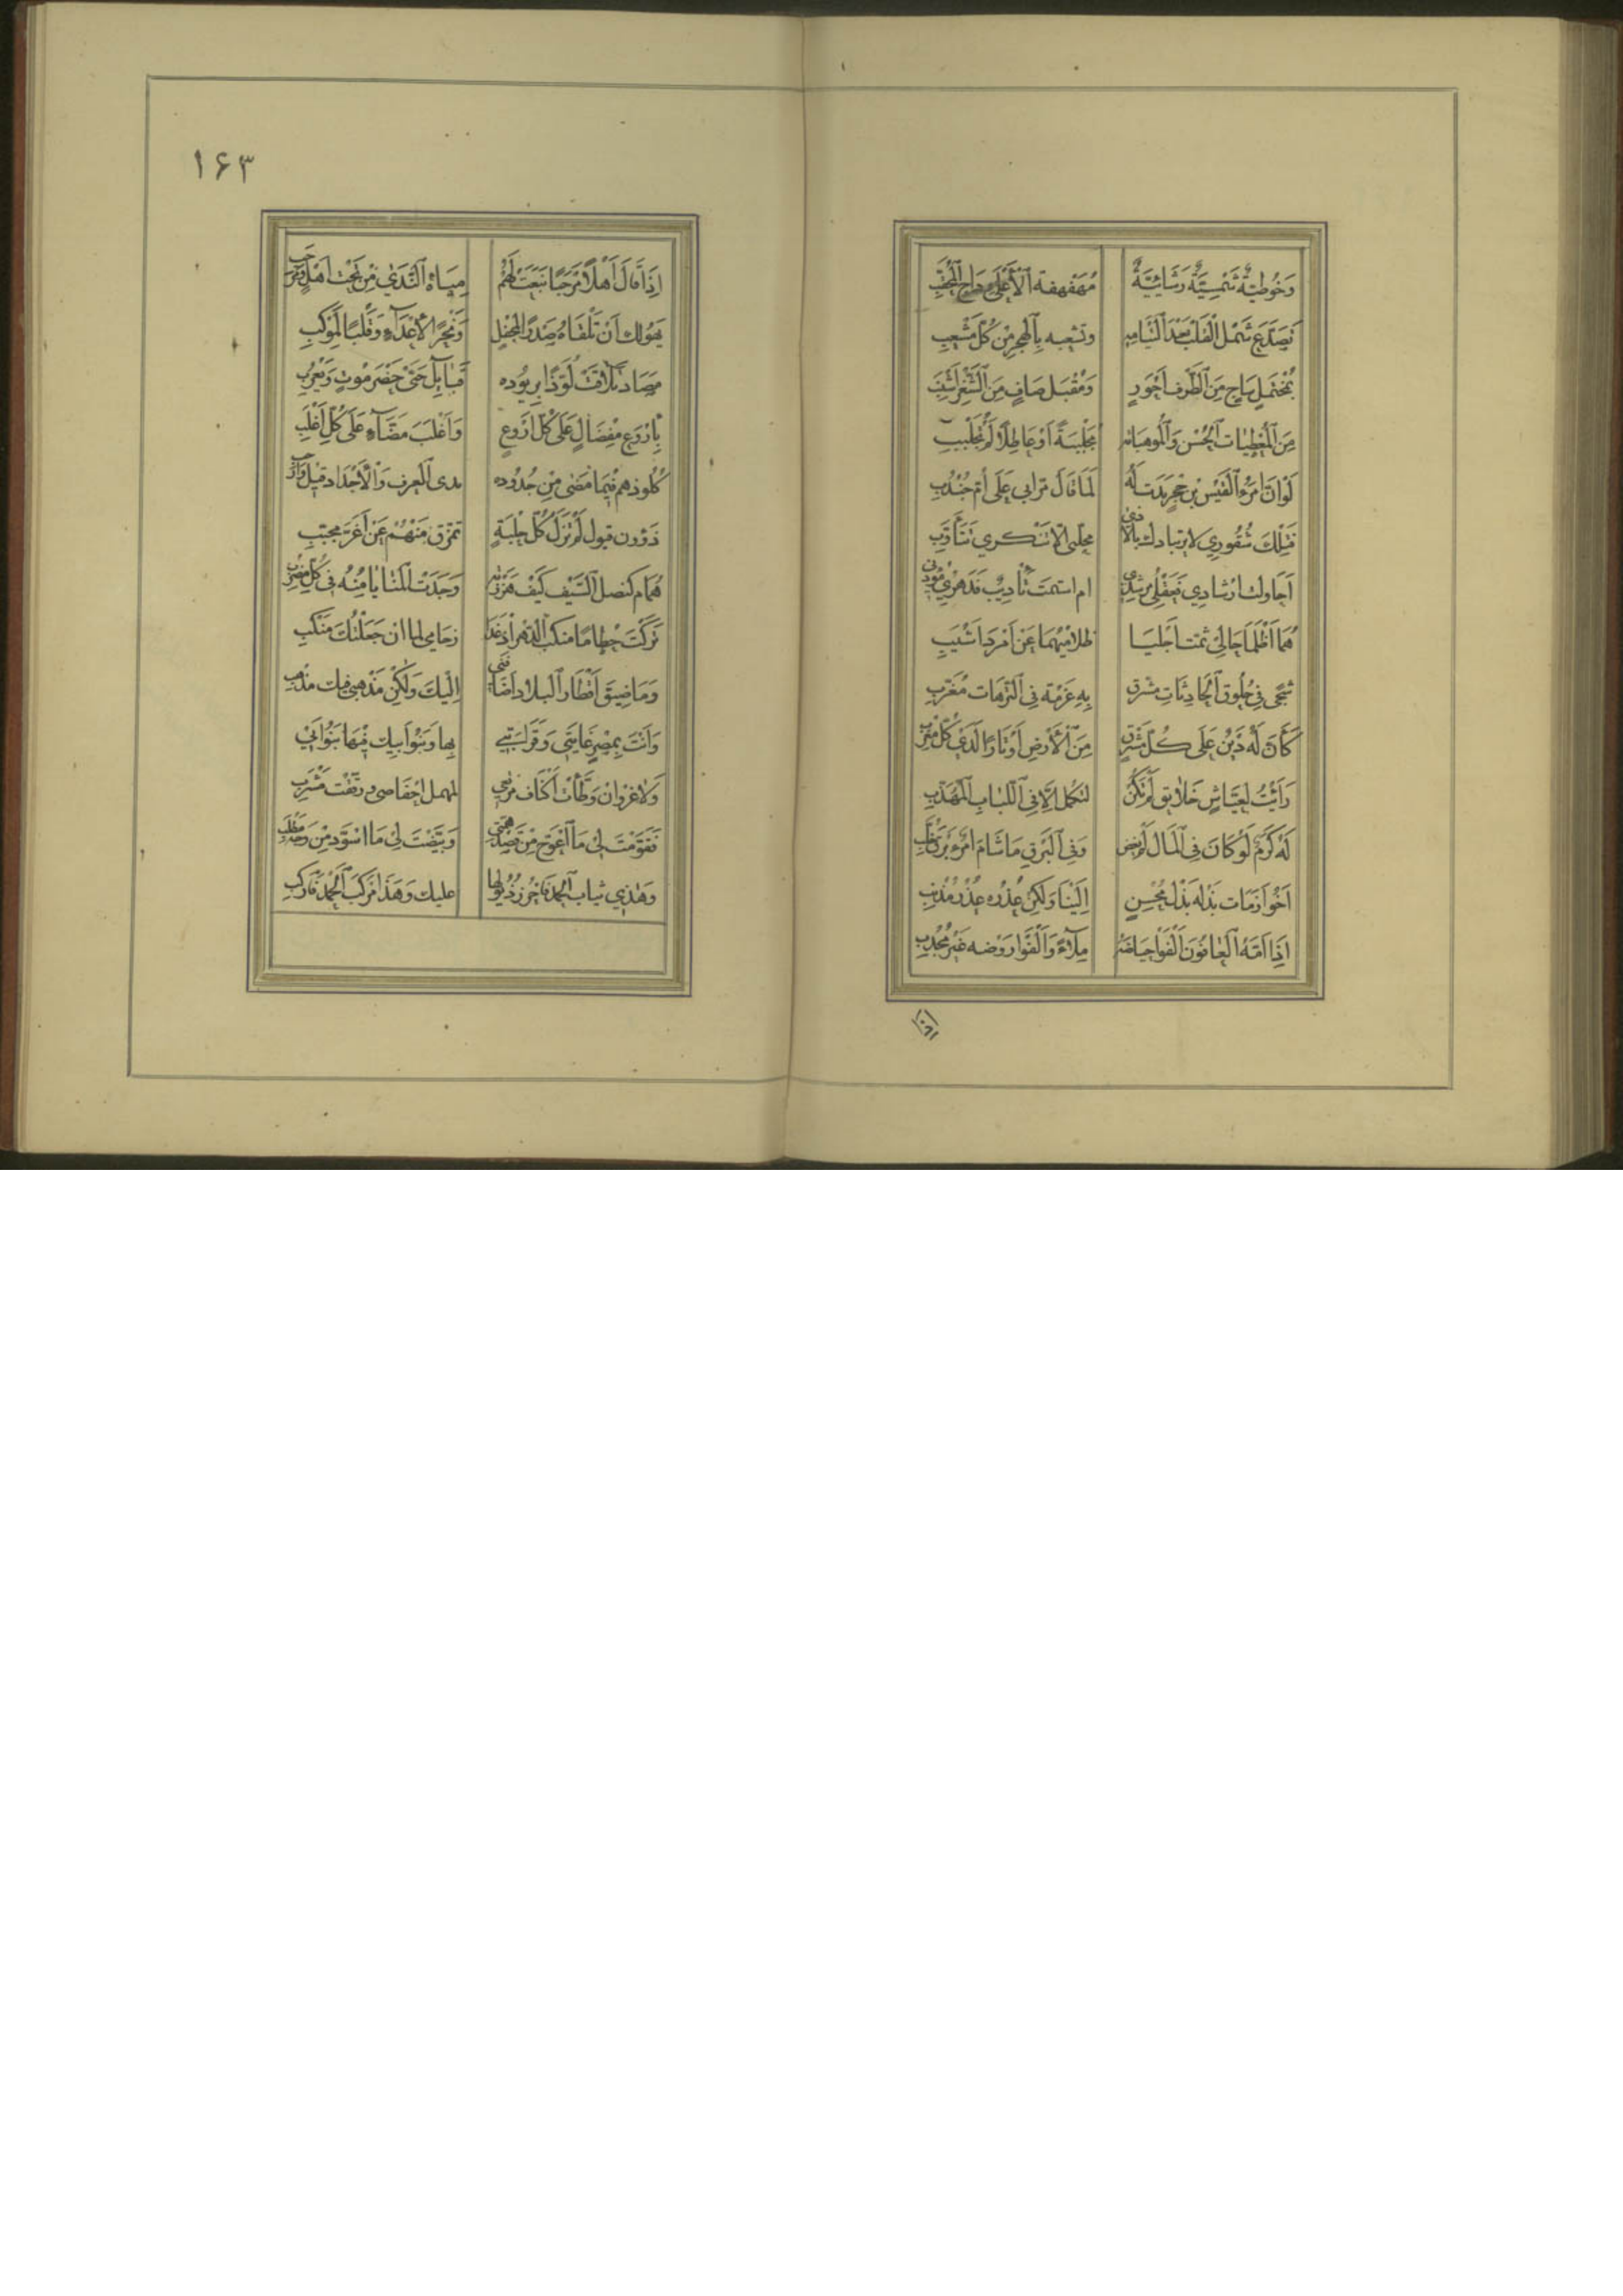 وَخُوطِيَّةٌ شَمْسِيَّةٌ رَشَائِيَّةٌ مُهَفْهفة اَلْأَعْلَى رداح المُحقَّبِ
تَصَدَّعَ شَمْل الْقَلْب من كُلّ مَشْعبِ
بمُخْتَبَلٍ سَاجٍ مِنَ الطَّرف اَحْوَرٍ وَمُقْبَل صَافٍ مِنَ الثَّغْرِ اَشْنَبِ
مِنَ الْمُعْطِيَات الْحُسْن وَالْمُوتياته مُجَلْبَبَةً اَوْ عَاطِلًا لَمْ تَجَلْبَبِ
لَوْ اَنَّ امْرَءَ الْقَيْسِ بْن حُجْرٍ بَدَت لَهُ لَمَا قَالَ مرّا بي عَلَى اُمّ جُنْدُبِ
فَتِلْكَ شُقُورِي لا ارتيادك بالاذى محلّى الا تبكري تَتَأَوَّبِ
اَحَاولت ارشادي فَعَقْلِي مُرْشِدِي ام استمت تَأْدِيبي فَدَهْرِي مُؤَدِّبي
هُمَا اَظْلَمَا حَالَيَّ ثمّت اَجْلَيَا ظلاميهما عَنْ اَمْرَدٍ اَشْيَبِ
شجًى فِي حُلُوق الْحَادِثَات مشرّق بِهِ عَزْمه فِي التُّرَّهَات مُغَرِّبِ
كَأَنَّ لَهُ دَيْنًا عَلَى كُلّ مَشْرِقٍ مِنَ الْأَرْض اَوْ ثَارًا لَدَى كُلّ مَغْرِبِ
رَأَيْتُ لِعَيَّاشٍ خَلَائِق لَمْ تَكُنْ لتكمل اِلَّا فِي اللُّبَاب الْمُهَذَّبِ
لَهُ كَرَمٌ لَوْ كَانَ فِي الْمَال لَمْ يغض وَفِي الْبَرْقِ مَا شَامَ امْرُؤٌ بَرْقَ خُلَّبِ
اَخُو اَزَمَات بَذْله بَذْل مُحْسِنٍ اِلَيْنَا وَلَكِنْ عُذْره عُذْر مُذْنِبِ
اِذَا اَمَّهُ الْعَافُونَ اَلْفَوْا حياضه مِلَاءً وَاَلْفَوْا رَوْضه غَيْر مُجْدِبِ
اذا
١٦٣
اِذَا قَالَ اَهْلًا مَرْحَبًا نَبَعَتْ لَهُمْ مِيَاهُ النَّدَى مِنْ تَحْت اَهْلٍ وَمَرْحَبِ
يَهُولك اَنْ تَلْقَاهُ صَدْرًا لِمَحْفِلٍ وَنَحْرًا لِأَعْدَاءٍ وَقَلْبًا لِمَوْكِبِ
مَصَاد تَلَاقَتْ لُوَّذًا بِرُيُوده قَبَائِلُ حَيَّيْ حَضْرَمَوْت وَيَعْرُبِ
بِأَرْوَعَ مِفْضَالٍ عَلَى كُلّ اَرْوَعٍ وَاَغْلَبَ مَضَّاءٍ عَلَى كُلّ اَغْلَبِ
كَلُوذهم فِيمَا مَضَى مِنْ جُدُوده بذى الْعرف وَالْاَحْمَاد قيل وَمرحب
ذَوُونَ قيول لَمْ تَزَلْ كُلّ حلْبَةٍ تمزّق مِنْهُمْ عَنْ اَغَرّ مجنّبِ
هُمَام كنصل السَّيْف كَيْفَ هَزَزْته وَجَدْتَ الْمَنَايَا مِنْهُ فِي كُلّ مَضْرِبِ
تَرَكْتَ حُطَامًا منكب الدَّهر اذ غدا زحامي لما ان جَعَلْتُكَ مَنْكِبِي
وَمَا ضِيق اَقْطَار الْبِلَاد اَضَافَنِي اِلَيْكَ وَلَكِنْ مَذْهَبِي فيك مذهبي
وَاَنْتَ بِمِصْرٍ غَايَتِي وَقَرَابَتِي بها وَبَنُو اَبيك فِيهَا بَنُو اَبِي
وَلَا غَرْو ان وَطَّأْتَ اَكْنَاف مَرْتَعِي لمهمل اَخْفَاضِي ورَفَّهْت مَشْرَبِي
فَقَوَّمْتَ لِي مَا اعْوَجَّ مِنْ قَصْد همتي وَبَيَّضْتَ لِي مَا اسْوَدَّ مِنْ وَجْه مَطْلَبِي
وَهَذِي ثياب الْحمد فَاجْرُرْ ذُيُولها عليك وَهَذَا مَرْكَب الْحَمْد فَارْكَبِ